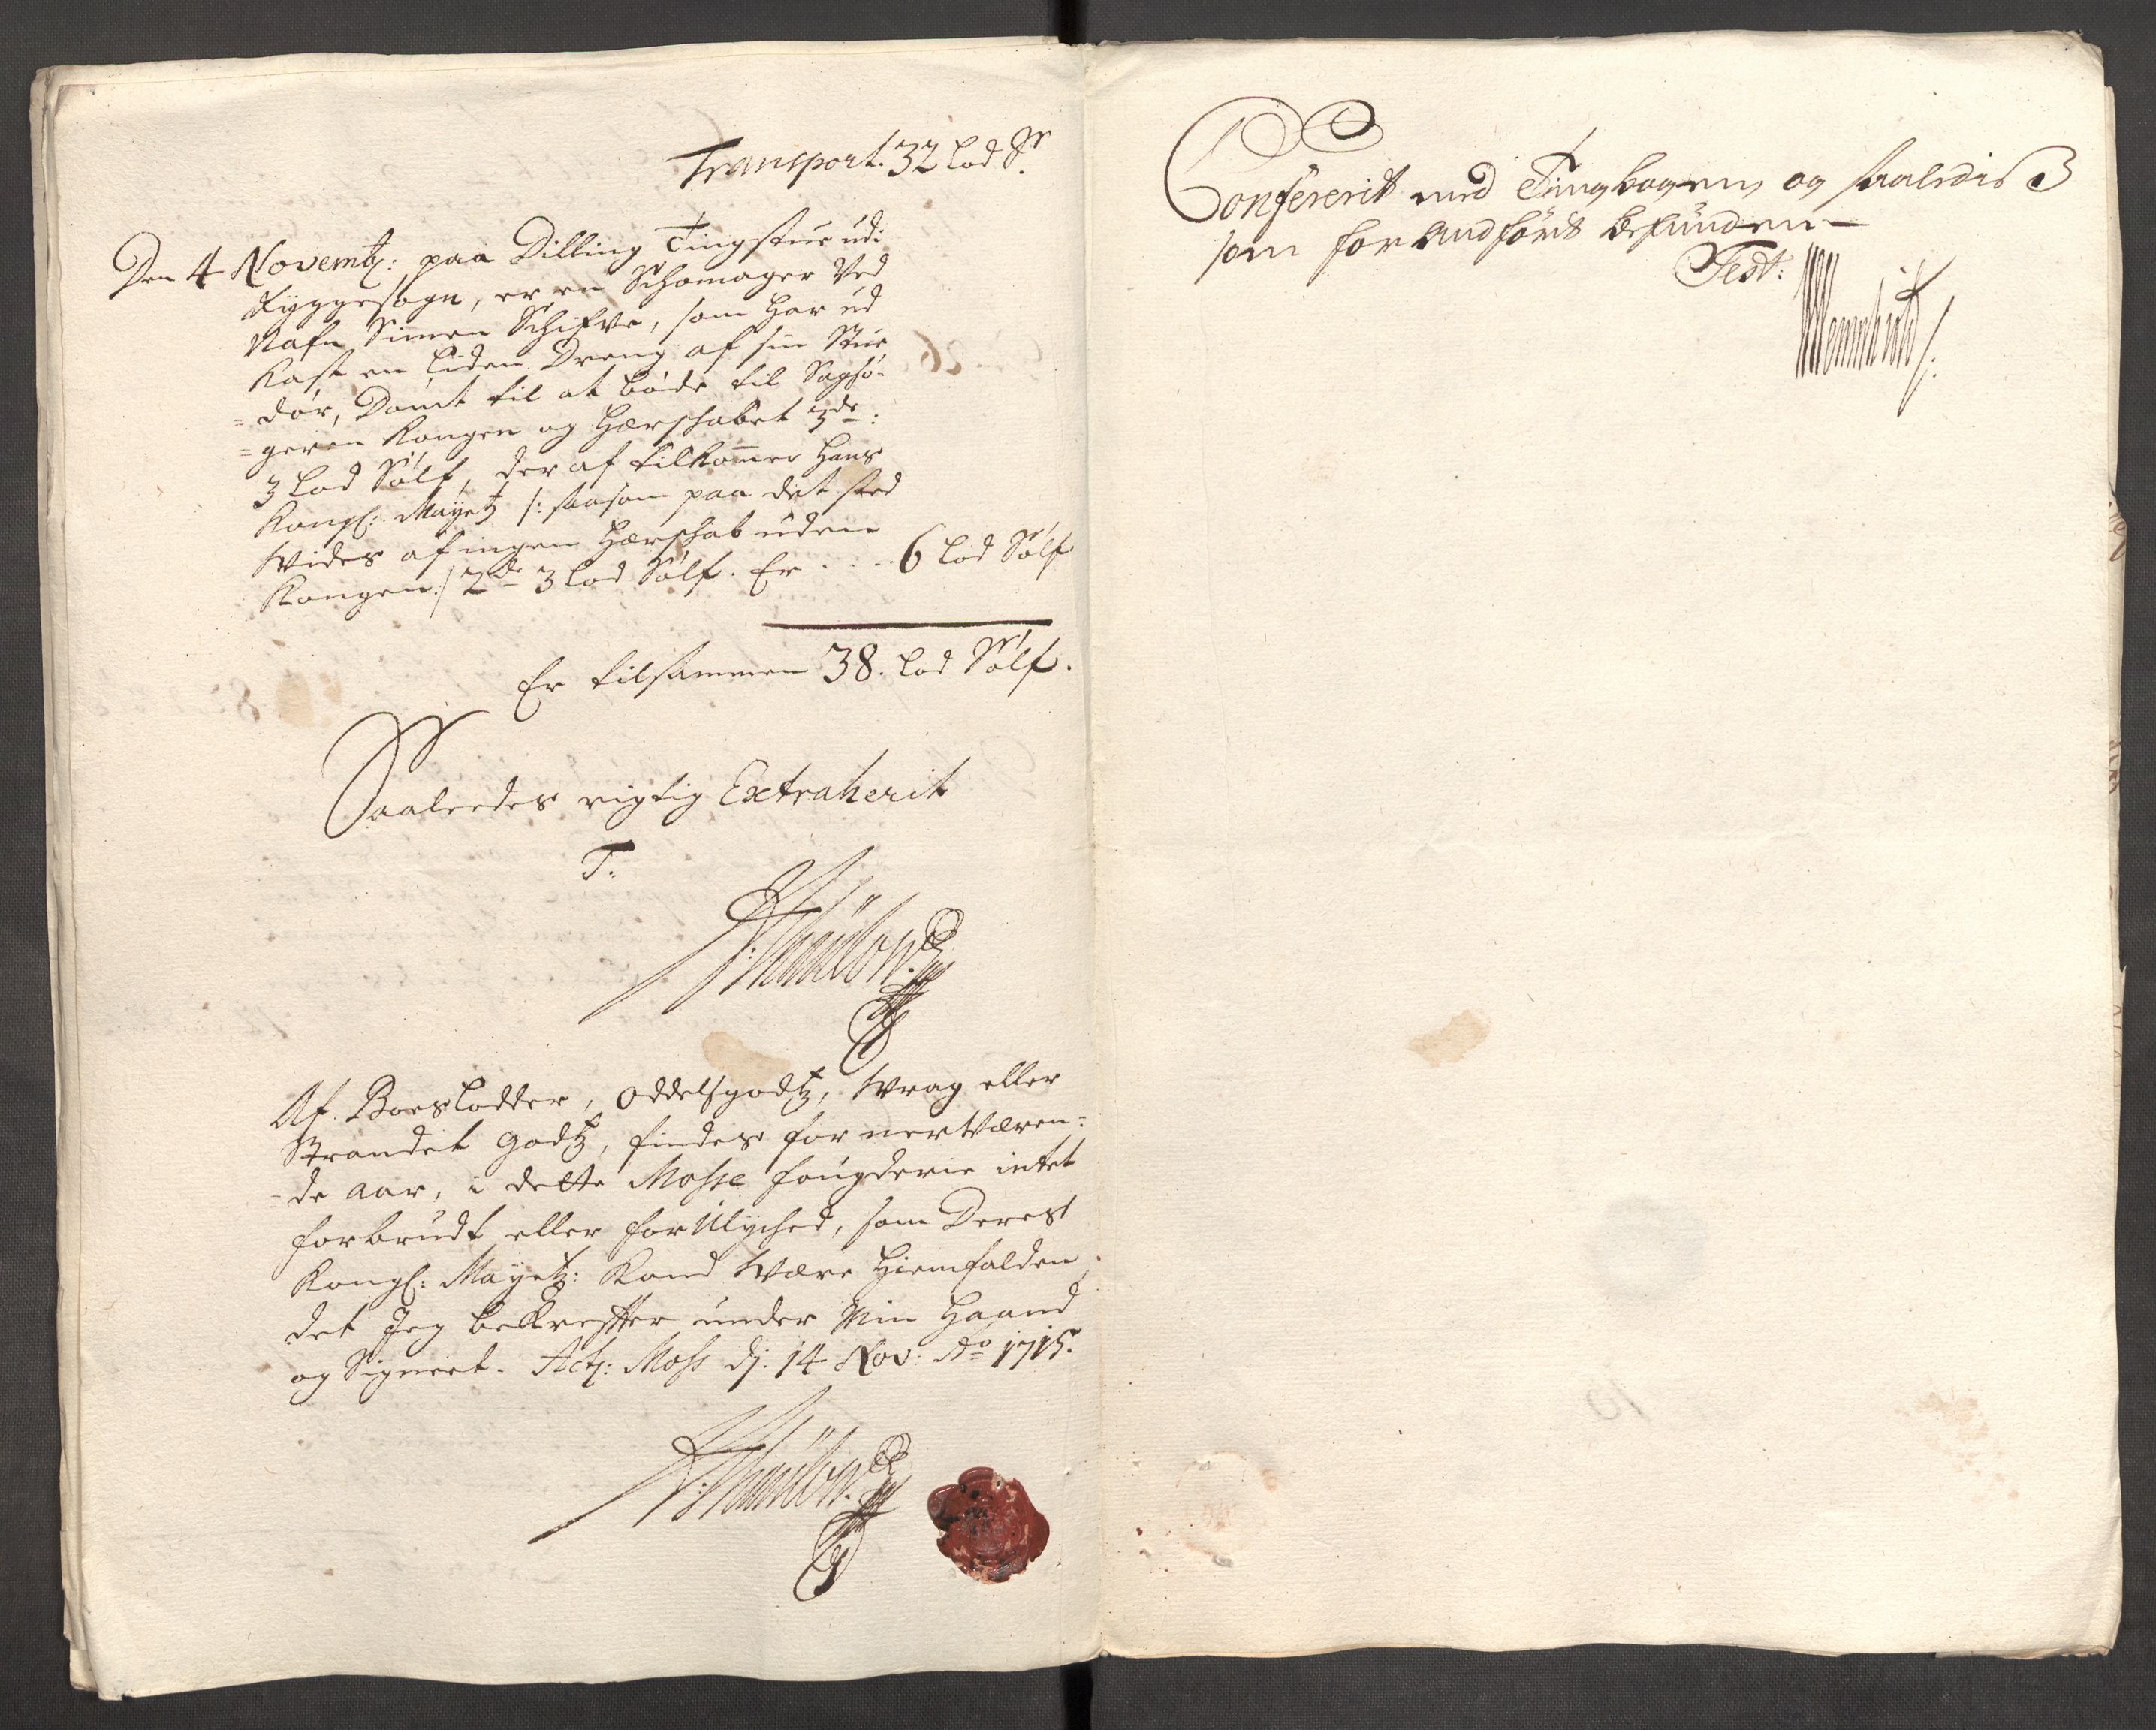 Transport. 32 Lod Sr.
Den 4 Novembr: paa Dilling Tingstue udi
Ryggesogn, er en Schomager Ved
Nafn Simen Schifve, som har ud
Kast en liden Dreng af sin Stue
= dør, Dømt til at bøde til Sagsø-
= geren Kongen og Herschabet 3de:
3 Lod Sølf, der af tilkommer Hans
Kongl: Mayetz /: saasom paa det sted
Wides af ingen Herschab uden
Kongen :/ 2de 3 Lod Sølf. Er . . . . 6 Lod Sølf
Er tilsammen 38. Lod Sølf.
Saaledes rigtig Extraherit
T.
Af Boeslodder, Oddelsgodtz, Wrag eller
Strandet Godtz, findes for nerværen=
= de aar, i dette Mosse fougderie intet
forbrudt eller forUlyched, som Deres
Kongl: Mayetz: Kand Være Hiemfalden,
det Jeg bekrefter under Min Haand
og Signeet. Actz: Moss dj. 14 Nov: Ao 1715.
Confererit med Tingbogen, og saaledis
som for Andførdt befunden -
Test: